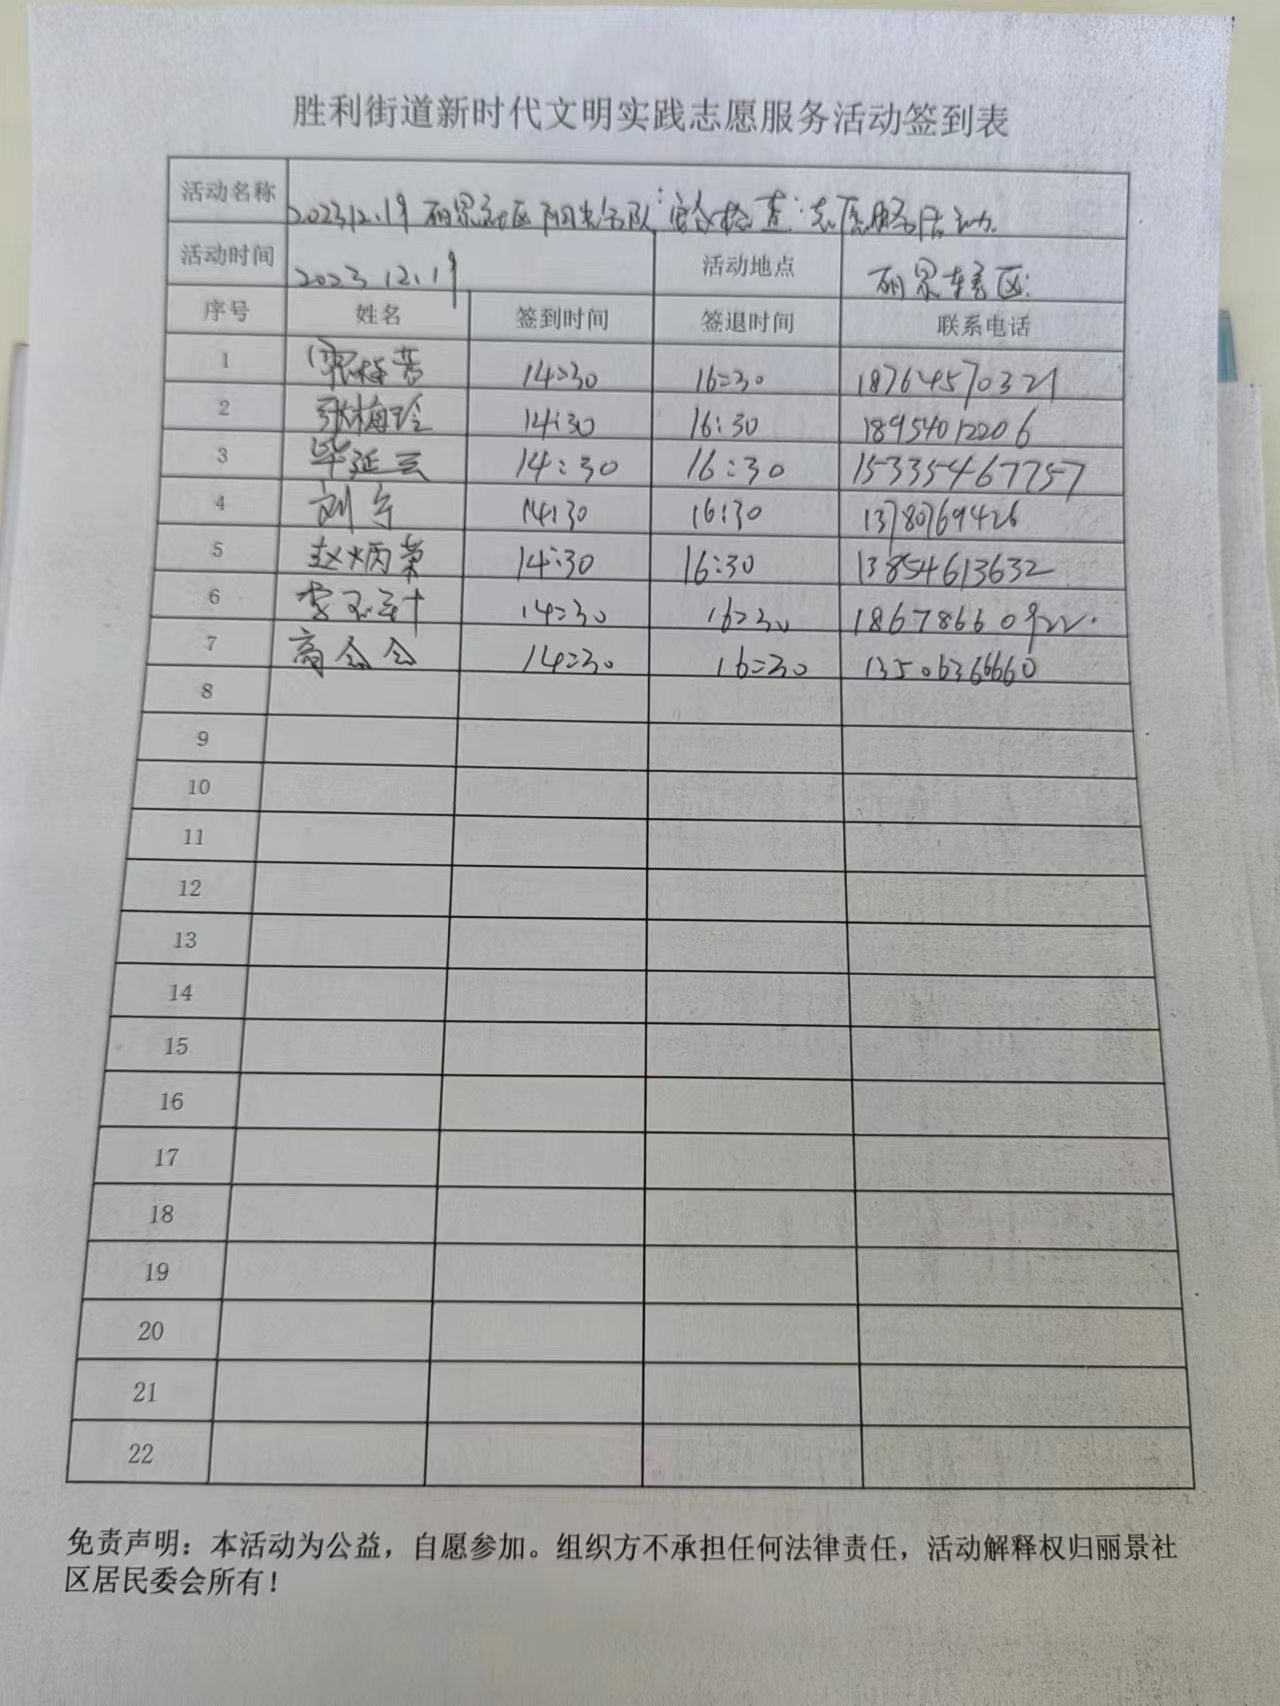 胜利街道新时代文明实践志愿服务活动签到表
活动名称 2023.12.19 丽景社区阳光分队"安检查"志愿服务活动
活动时间 2023.12.19 活动地点 丽景辖区
序号 姓名 签到时间 签退时间 联系电话
1 梅芳 14:30 16:30 18764570321
2 张梅玲 14:30 16:30 18954012206
3 毕延云 14:30 16:30 15335467757
4 刘宁 14:30 16:30 13780769426
5 赵炳荣 14:30 16:30 13854613632
6 李玉 14:30 16:30 18678660922
7 高会会 14:30 16:30 13506366660
8
9
10
11
12
13
14
15
16
17
18
19
20
21
22
免责声明：本活动为公益，自愿参加。组织方不承担任何法律责任，活动解释权归丽景社
区居民委会所有！